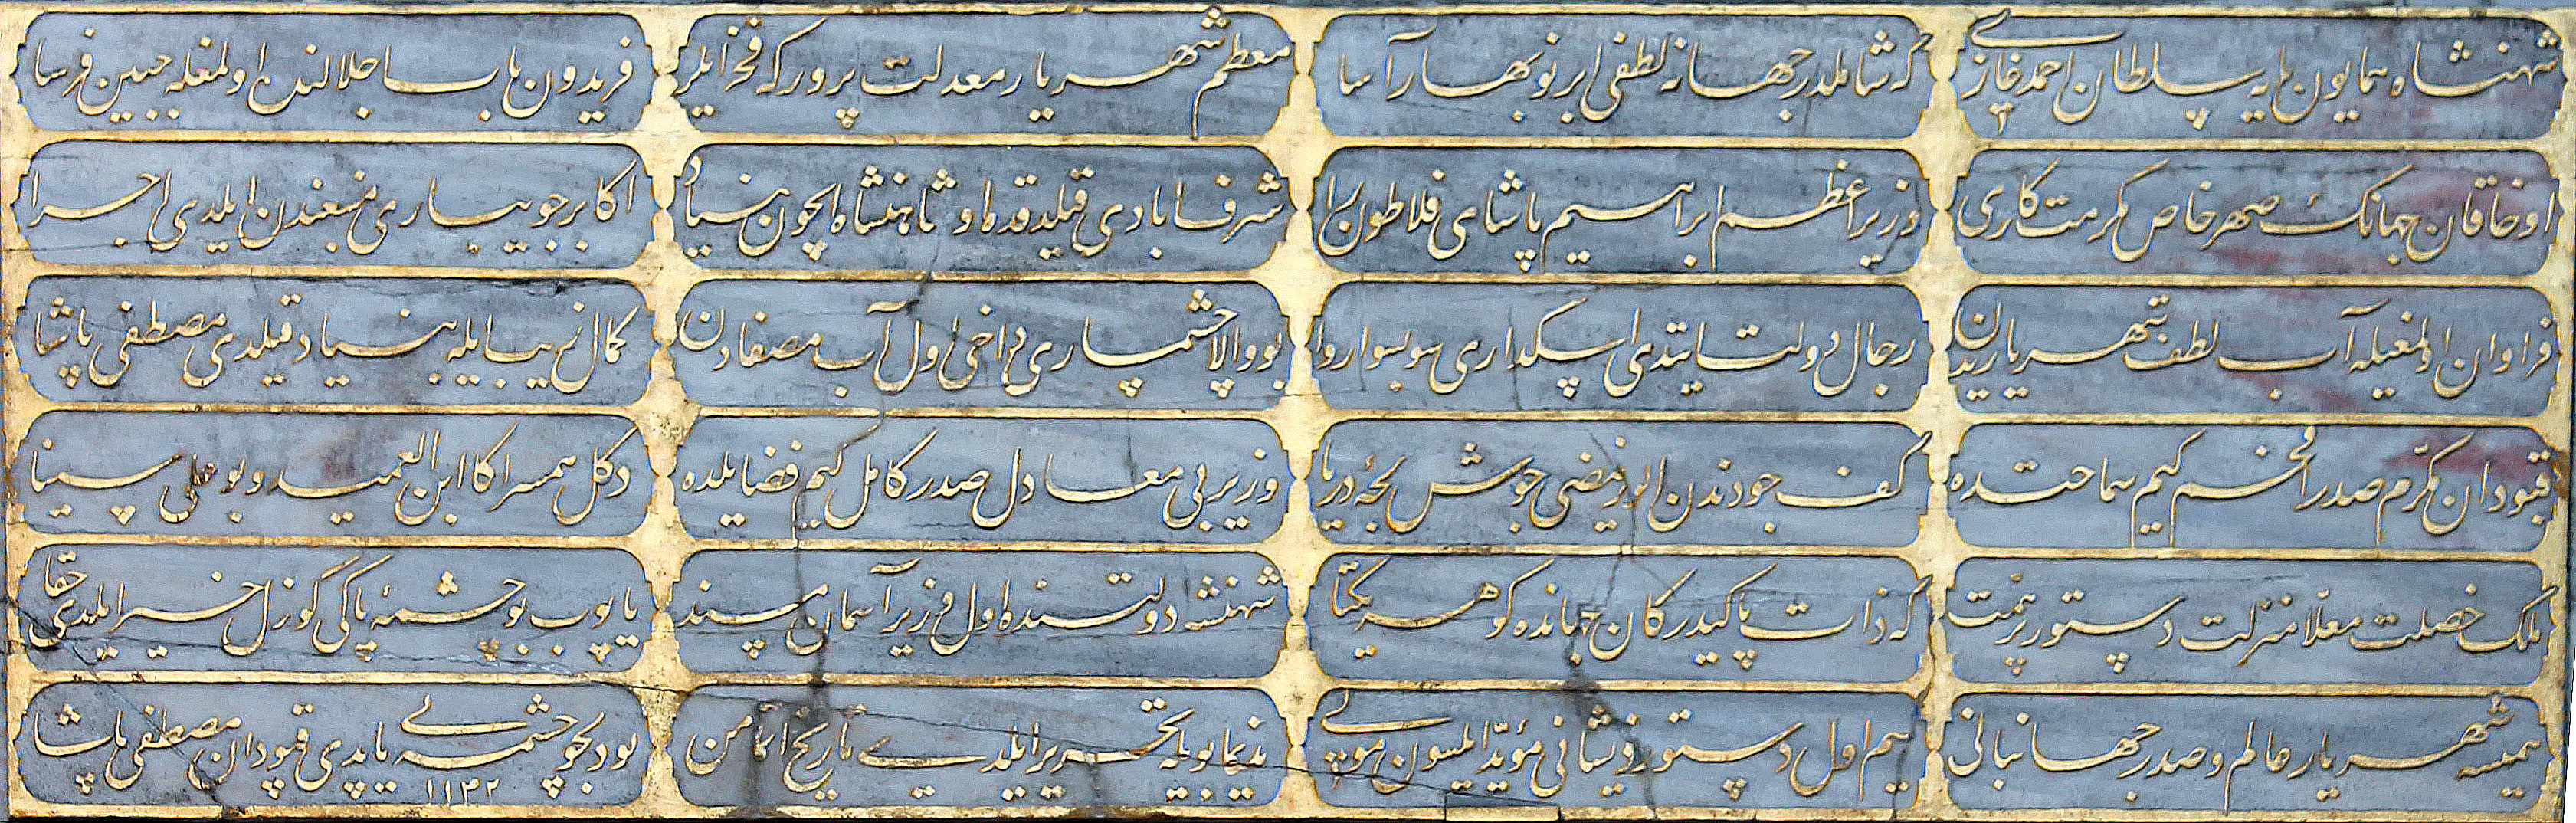 شهنشاه همایون پایه سلطان احمد غازی
که شاملدر جهانه لطفی ابر نوبهار آسا
معظم شهریار معدلت پرور که فخر ایلر
فریدون باب اجلالنده اولمغله جبین فرسا
او خاقان جهانك صهر خاص مکرمتکاری
وزیر اعظم ابراهیم پاشای فلاطون را
شرفابادی قیلدقده او شاهنشاه ایچون بنیاد
اکابر جویباری منبعندن ایلدی اجرا
فراوان اولمغیله آب لطف شهریاریدن
رجال دولت ایتدی اسکداری سوبسو اروا
بو والا چشمه‌ساری داخی اول آب مصفادن
کمال زیب ایله بنیاد قیلدی مصطفی پاشا
قبودان مکرم صدر افخم کیم سماحتده
کف جودندن اولور مضی جوش لجهٔ دریا
وزیر بی معادل صدر کامل کیم فضایلده
دکل همسر اکا ابن العمید و بو علی سینا
ملك خصلت معلا منزلت دستور پرهمت
که ذات پاکیدر کان جهانده کوهر یکتا
شهنشه دولتنده اول وزیر آسمان مسند
یاپوب بو چشمهٔ پاکی کوزل خیر ایلدی حقا
همیشه شهریار عالم و صدر جهانبانی
هم اول دستور ذیشانی مؤید ایلسون مولی
ندیما بویله تحریر ایلدی تاریخ اتمامن
بو دلجو چشمه‌یی یاپدی قبودان مصطفی پاشا
۱۱۴۲